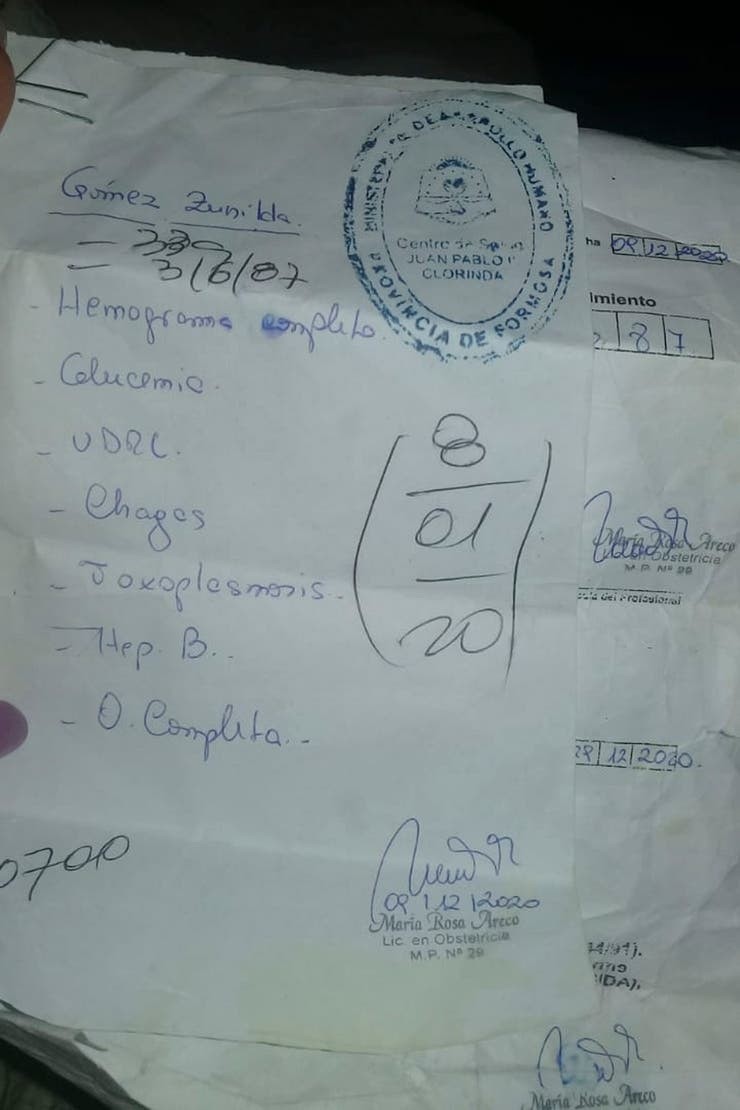 Gómez Zunilda.
3/6/87
- Hemograma completo.
- Glucemia.
- VDRL.
- Chagas
- Toxoplasmosis.
- Hep. B..
- O. Completa..
MINISTERIO DE DESARROLLO HUMANO
Centro de Salud
JUAN PABLO II
CLORINDA
PROVINCIA DE FORMOSA
8
01
20
0700
09/12/2020
María Rosa Areco
Lic. en Obstetricia
M.P. Nº 29
09 12 2020
imiento
8 7
María Rosa Areco
en Obstetricia
M.P. Nº 29
del Profesional
12 2020.
María Rosa Areco